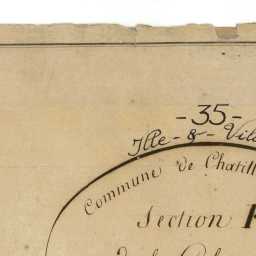 - 35 -
Ille - & - Vila
Commune de Chatill
Section F